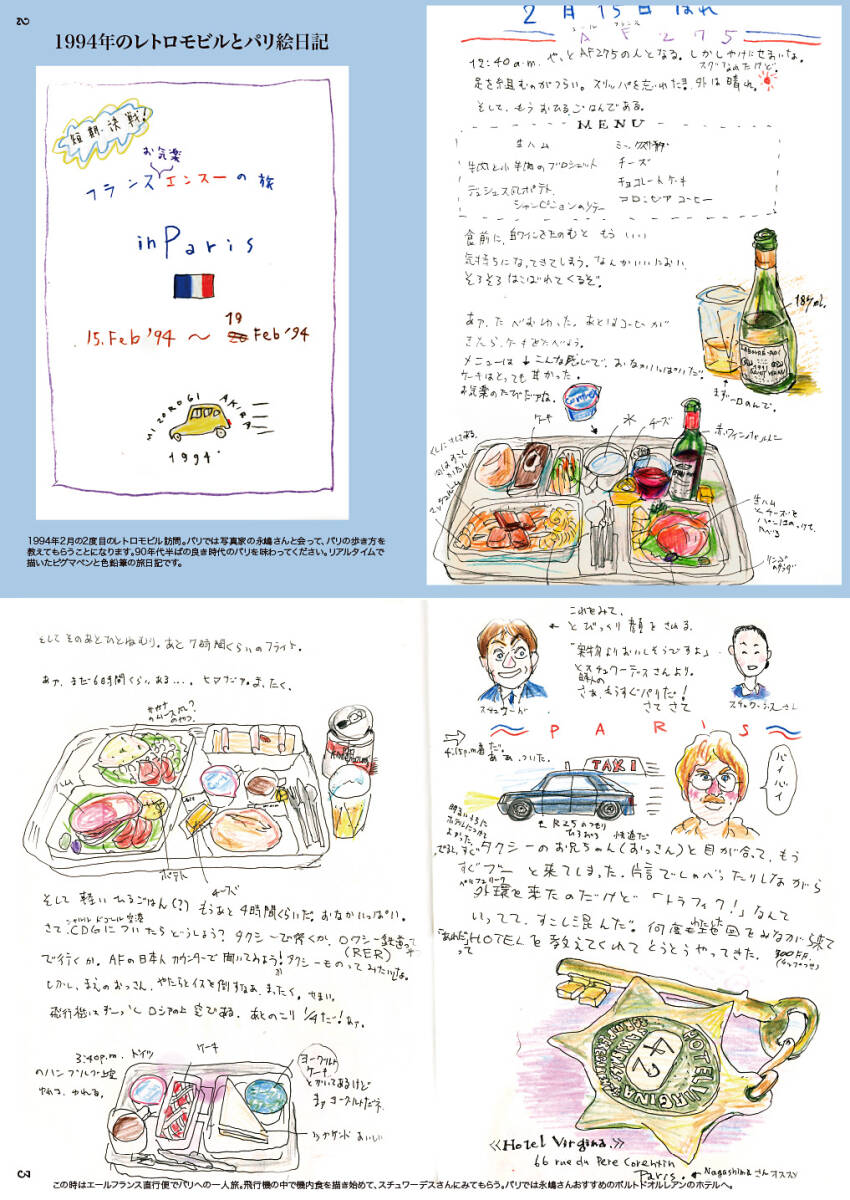 2
1994年のレトロモビルとパリ絵日記
短期決戦!
お気楽
フランスエンスーの旅
in Paris
15.Feb '94 〜 19 Feb '94
MIZOROGI AKIRA
1994.
1994年2月の2度目のレトロモビル訪問。パリでは写真家の永嶋さんと会って、パリの歩き方を
教えてもらうことになります。90年代半ばの良き時代のパリを味わってください。リアルタイムで
描いたピグマペンと色鉛筆の旅日記です。
2月15日 はれ
エール フランス
AF275
12:40a.m. やっとAF275の人となる。しかしやけにせまいな。
足を組むのがつらい。スリッパを忘れた!! 外は晴れ。
そして、もうおひるごはんである。
MENU
生ハム
牛肉と小牛肉のブロシェット
シャンピニョンのソテー
チーズ
チョコレートケーキ
コロンビアコーヒー
食前に、白ワインをたのむと もう いい
気持ちになってきてしまう。なんかいいにおい
そろそろはこばれてくるぞ。
あァ、たべおわった。あとはコーヒーが
きたら、ケーキをたべよう。
メニューは↓こんな感じで、おなかいっぱいだ。
ケーキはとっても甘かった。
お気楽のたびだァな。
187ml.
まず一口のんで。
ケーキ
チーズ
生ハム
リンゴ
のサラダ
そして そのあとひとねむり。あと7時間くらいのフライト。
あァ、まだ6時間くらいある.... ヒマつぶし。まったく。
サカナ
のムース風?
のやつ。
ハム
ポテト
チーズ
そして 軽い ひるごはん(?) もうあと4時間くらいだ。おなかいっぱい。
シャルル ドゴール空港
さて、CDGについたらどうしよう? タクシーで行くか、ロワシー鉄道
(RER)
で行くか。AFの日本人カウンターで聞いてみよう! タクシーものってみたいな。
しかし、まえのおっさん、やたらとイスを倒すなあ、まったく。せまい。
飛行機はずーっとロシアの上空である。あとのこり1/4だ!あァ。
3:40p.m. ドイツ
のハンブルク上空
ゆれる、ゆれる。
ケーキ
ヨーグルト
ケーキ
とかいてあるけど
まァヨーグルトだネ
サンドイッチ おいしい
これをみて、
← とびっくり顔をされる。
「実物よりおいしそうですよ」
とスチュワーデスさんより。
さあ、もうすぐパリだ!
さて さて
スチュワード
スチュワーデスさん
PARIS
4:15p.m着だ。
あぁ、ついた。
TAXI
バイバイ
↑R25のつもり
快適だ
タクシーのお兄ちゃん(おっさん)と目が合って、もう
すぐブーと来てしまった。片言でしゃべったりしながら
ペリフェリーク
外環を来たのだけど「トラフィク!」なんて
いってて、すこし混んだ。何度も地図をみながら来て
「あれだ」って HOTELを教えてくれてとうとうやってきた。
300FF.
(チップつき)
HOTEL VIRGINA
42
《Hotel Virgina.》
66 rue du Pere Corentin
Paris. ← Nagashimaさんオススメ
3
この時はエールフランス直行便でパリへの一人旅。飛行機の中で機内食を描き始めて、スチュワーデスさんにみてもらう。パリでは永嶋さんおすすめのポルトドオルレアンのホテルへ。